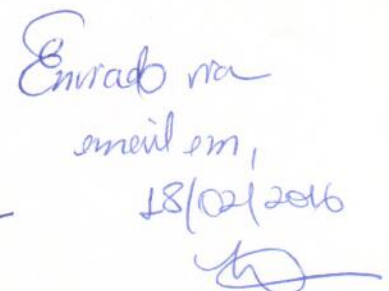 Enviado via
email em,
18/02/2016